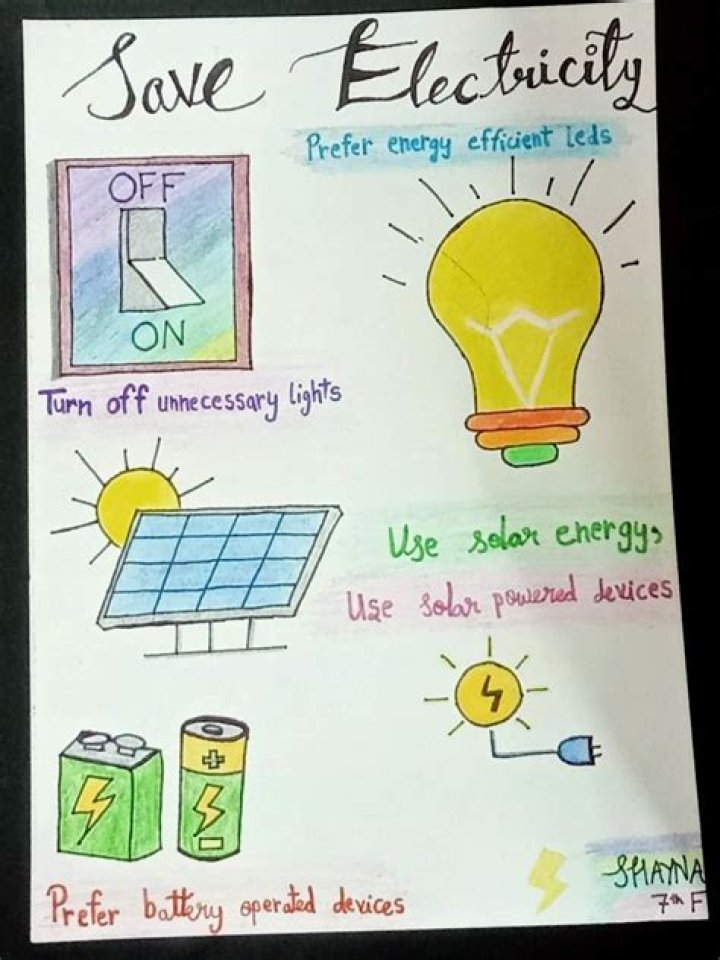 Save Electricity
Prefer energy efficient leds
OFF
ON
Turn off unnecessary lights
Use solar energy,
Use solar powered devices
Prefer battery operated devices
SHAYNA
7th F